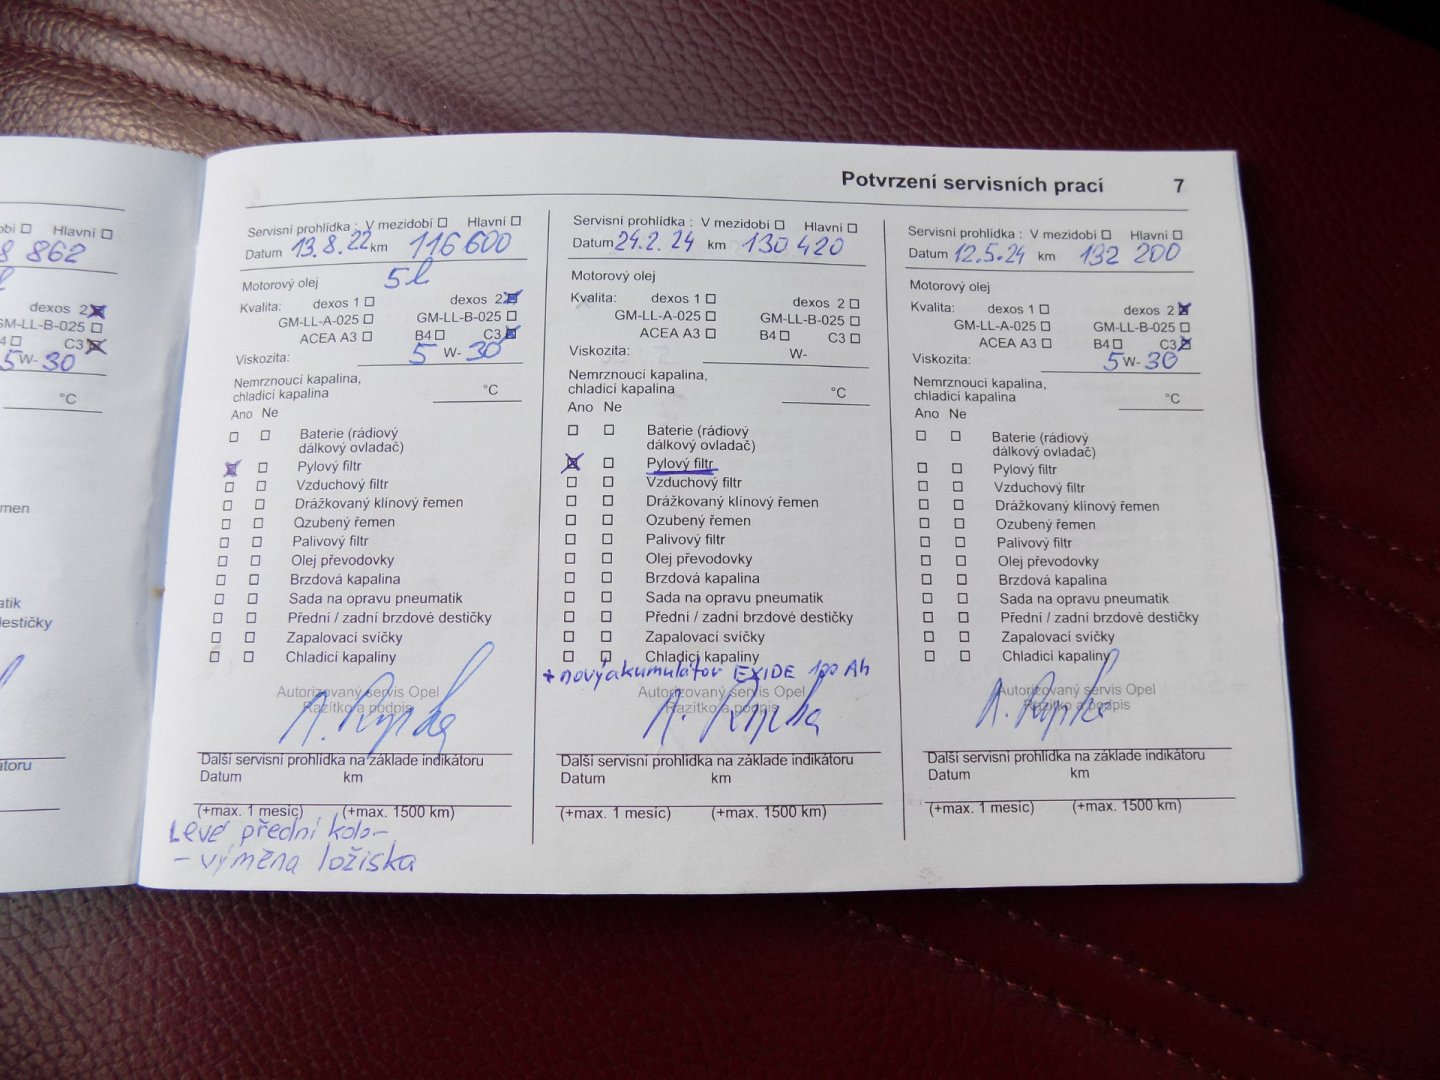 Potvrzení servisních prací 7
obí ☐ Hlavní ☐
8 862
dexos 2 ☒
GM-LL-B-025 ☐
4 ☐ C3 ☒
5 W- 30
°C
men
atik
destičky
átoru
Servisní prohlídka : V mezidobí ☐ Hlavní ☐
Datum 13.8.22 km 116 600
Motorový olej 5l
Kvalita: dexos 1 ☐ dexos 2 ☒
GM-LL-A-025 ☐ GM-LL-B-025 ☐
ACEA A3 ☐ B4 ☐ C3 ☒
Viskozita: 5 W- 30
Nemrznoucí kapalina,
chladicí kapalina °C
Ano Ne
☐ ☐ Baterie (rádiový
dálkový ovladač)
☒ ☐ Pylový filtr
☐ ☐ Vzduchový filtr
☐ ☐ Drážkovaný klínový řemen
☐ ☐ Ozubený řemen
☐ ☐ Palivový filtr
☐ ☐ Olej převodovky
☐ ☐ Brzdová kapalina
☐ ☐ Sada na opravu pneumatik
☐ ☐ Přední / zadní brzdové destičky
☐ ☐ Zapalovací svíčky
☐ ☐ Chladicí kapaliny
Autorizovaný servis Opel
Razítko a podpis
Další servisní prohlídka na základe indikátoru
Datum km
(+max. 1 mesíc) (+max. 1500 km)
Levé přední kolo-
- výměna ložiska
Servisní prohlídka : V mezidobí ☐ Hlavní ☐
Datum 24.2.24 km 130 420
Motorový olej
Kvalita: dexos 1 ☐ dexos 2 ☐
GM-LL-A-025 ☐ GM-LL-B-025 ☐
ACEA A3 ☐ B4 ☐ C3 ☐
Viskozita: W-
Nemrznoucí kapalina,
chladicí kapalina °C
Ano Ne
☐ ☐ Baterie (rádiový
dálkový ovladač)
☒ ☐ Pylový filtr
☐ ☐ Vzduchový filtr
☐ ☐ Drážkovaný klínový řemen
☐ ☐ Ozubený řemen
☐ ☐ Palivový filtr
☐ ☐ Olej převodovky
☐ ☐ Brzdová kapalina
☐ ☐ Sada na opravu pneumatik
☐ ☐ Přední / zadní brzdové destičky
☐ ☐ Zapalovací svíčky
☐ ☐ Chladicí kapaliny
+ nový akumulátor EXIDE 100 Ah
Autorizovaný servis Opel
Razítko a podpis
Další servisní prohlídka na základe indikátoru
Datum km
(+max. 1 mesíc) (+max. 1500 km)
Servisní prohlídka : V mezidobí ☐ Hlavní ☐
Datum 12.5.24 km 132 200
Motorový olej
Kvalita: dexos 1 ☐ dexos 2 ☒
GM-LL-A-025 ☐ GM-LL-B-025 ☐
ACEA A3 ☐ B4 ☐ C3 ☒
Viskozita: 5 W- 30
Nemrznoucí kapalina,
chladicí kapalina °C
Ano Ne
☐ ☐ Baterie (rádiový
dálkový ovladač)
☐ ☐ Pylový filtr
☐ ☐ Vzduchový filtr
☐ ☐ Drážkovaný klínový řemen
☐ ☐ Ozubený řemen
☐ ☐ Palivový filtr
☐ ☐ Olej převodovky
☐ ☐ Brzdová kapalina
☐ ☐ Sada na opravu pneumatik
☐ ☐ Přední / zadní brzdové destičky
☐ ☐ Zapalovací svíčky
☐ ☐ Chladicí kapaliny
Autorizovaný servis Opel
Razítko a podpis
Další servisní prohlídka na základe indikátoru
Datum km
(+max. 1 mesíc) (+max. 1500 km)